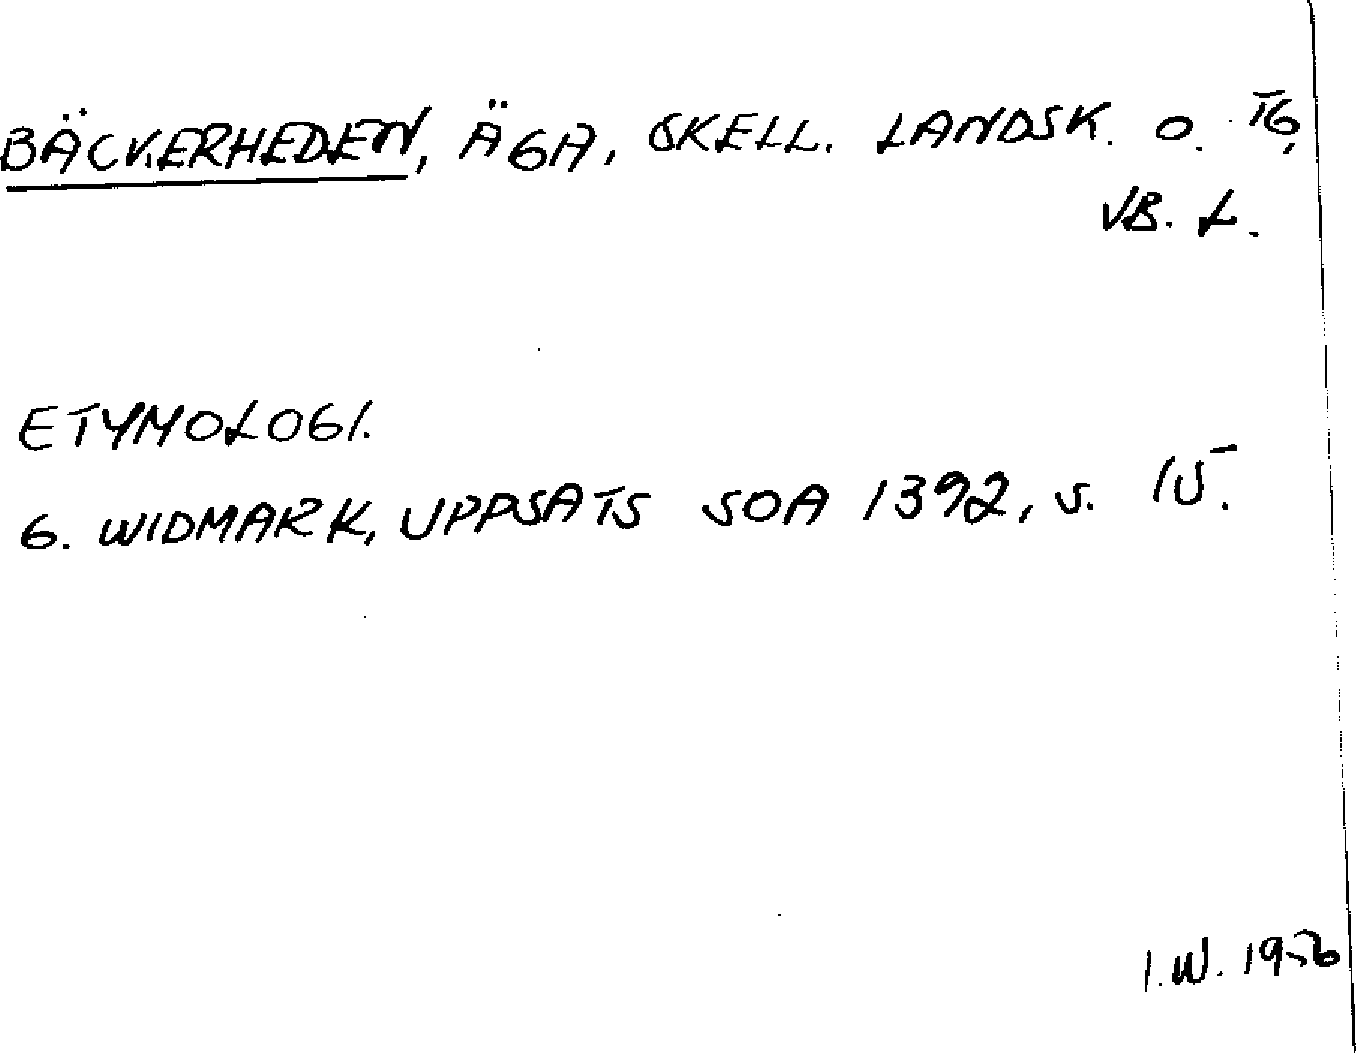 BÄCKERHEDEN, ÄGA, SKELL. LANDSK. O. TG,
VB. L.
ETYMOLOGI.
G. WIDMARK, UPPSATS SOA 1392, S. 15.
I.W. 1956